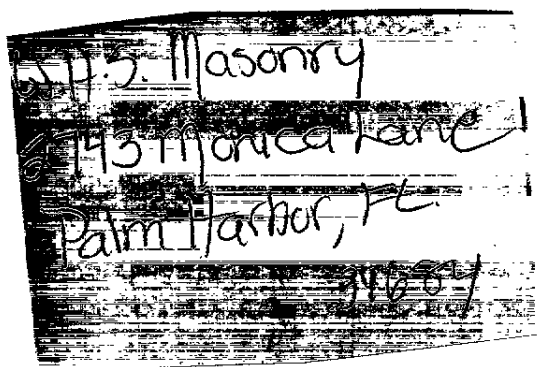 W.P.S. Masonry
Monica Lane
Palm Harbor, FL.
34684